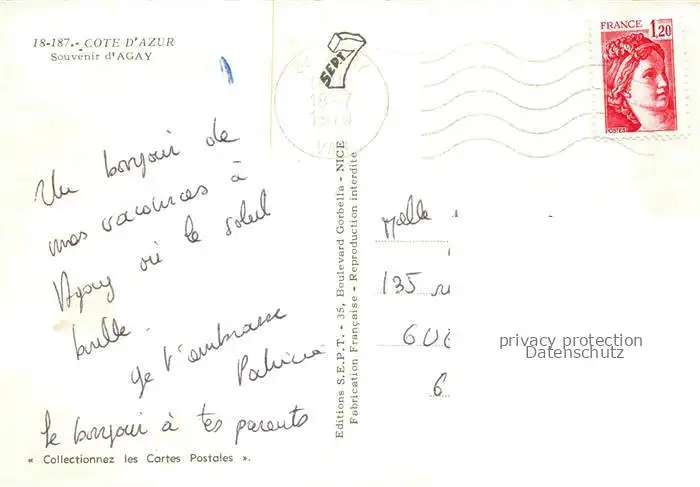 18-187.- COTE D'AZUR
Souvenir d'AGAY
SEPT 7
18-7
FRANCE 1,20
POSTES
Un bonjour de
mes vacances à
Agay où le soleil
brille.
Je t'embrasse
Patricia
Le bonjour à tes parents
« Collectionnez les Cartes Postales ».
Editions S.E.P.T. - 35, Boulevard Gorbella - NICE
Fabrication Française - Reproduction interdite
Melle
135
privacy protection
Datenschutz